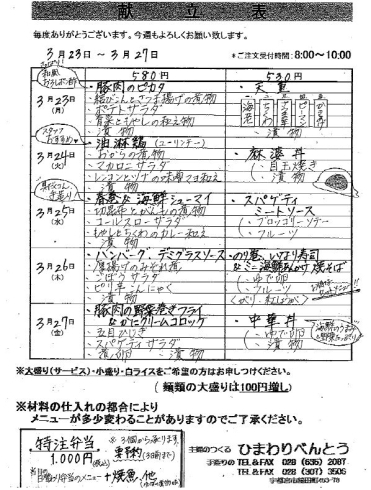 献立表
毎度ありがとうございます。今週もよろしくお願い致します。
3月23日～3月27日
*ご注文受付時間：8:00～10:00
580円 530円
3月23日(月)
・豚肉のピカタ
・ポテトサラダ
・青菜ともやしの和え物
・漬物
・天重
海老
・漬物
スタッフおすすめ
3月24日(火)
・油淋鶏(ユーリンチー)
・おからの煮物
・マカロニサラダ
・漬物
・麻婆丼
・目玉焼き
・漬物
3月25日(水)
・春巻& 海鮮シューマイ
・切昆布とがんもの煮物
・コールスローサラダ
・もやしとちくわのカレー和え
・漬物
・スパゲティ
ミートソース
・ブロッコリーソテー
・フルーツ
3月26日(木)
・ハンバーグ・デミグラスソース
・厚揚げのみぞれ煮
・ごぼうサラダ
・ピリ辛こんにゃく
・漬物
・のり巻、いなり寿司
&ミニ海鮮あんかけ焼そば
・ゆで卵
・フルーツ
3月27日(金)
・豚肉の野菜巻きフライ
&かにクリームコロッケ
・五目ひじき
・スパゲティサラダ
・漬物
・中華丼
・ゆで卵
・漬物
※大盛り(サービス)・小盛り・白ライスをご希望の方はお申しつけください。
(麺類の大盛りは100円増し)
※材料の仕入れの都合により
メニューが多少変わることがありますのでご了承ください。
特注弁当
1,000円(税込)
※3個から承ります。
要予約
※日替り弁当のメニュー+焼魚、他
主婦のつくる ひまわりべんとう
手造りの TEL&FAX 028 (635) 2087
TEL&FAX 028 (307) 3505